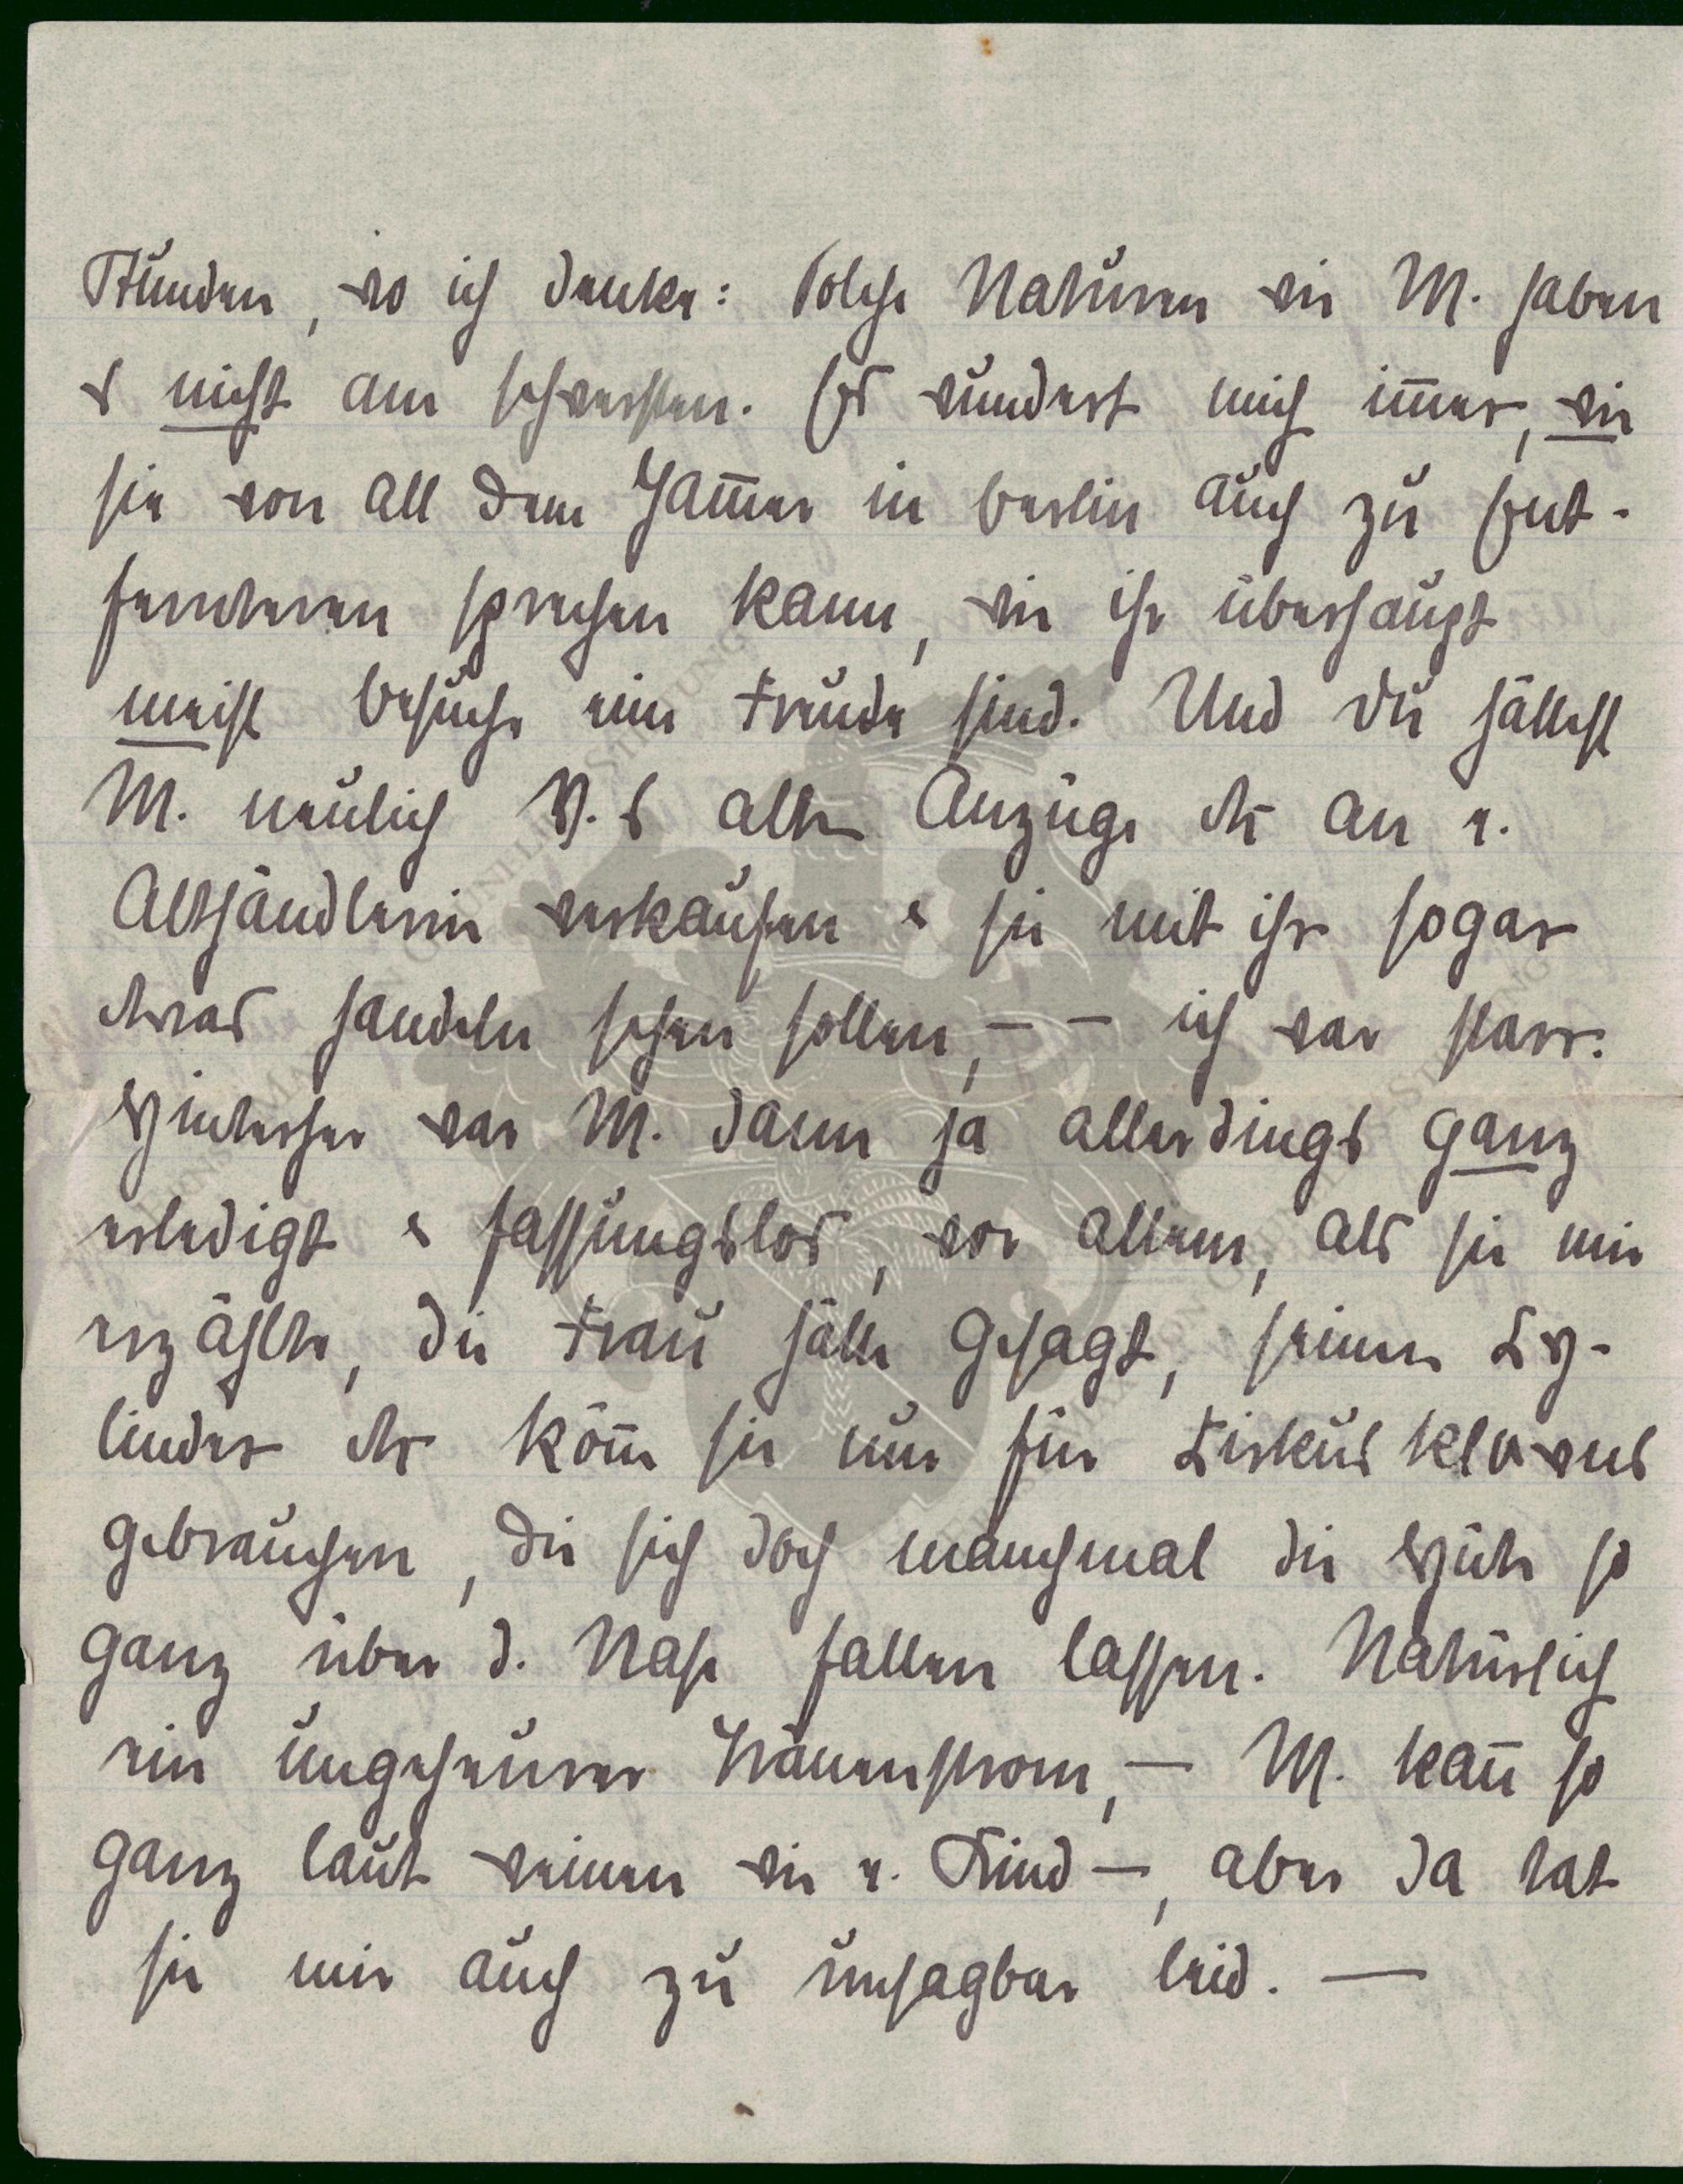 Stunden, wo ich denke: Solche Naturen wie M. haben
es nicht am schwersten. Es wundert mich im̅er, wie
sie von all dem Jam̅er in Berlin auch zu Ent-
fernteren sprechen kann, wie ihr überhaupt
meist Besuche eine Freude sind. Und Du hättest
M. neulich V.s alte Anzüge etc an e.
Althändlerin verkaufen & sie mit ihr sogar
etwas handeln sehen sollen, – – ich war starr.
Hinterher war M. dann ja allerdings ganz
erledigt & fassungslos, vor allem, als sie mir
erzählte, die Frau hätte gesagt, seinen Zy-
linder etc kön̅e sie nur für Zirkusklowns
gebrauchen, die sich doch manchmal die Hüte so
ganz über d. Nase fallen lassen. Natürlich
ein ungeheurer Tränenstrom, – M. kan̅ so
ganz laut weinen wie e. Kind –, aber da tat
sie mir auch zu unsagbar leid. —